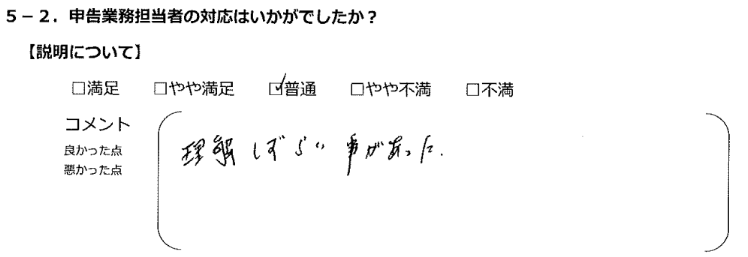 5－2．申告業務担当者の対応はいかがでしたか？
【説明について】
□満足 □やや満足 ☑普通 □やや不満 □不満
コメント
良かった点
悪かった点
理解しずらい事があった.